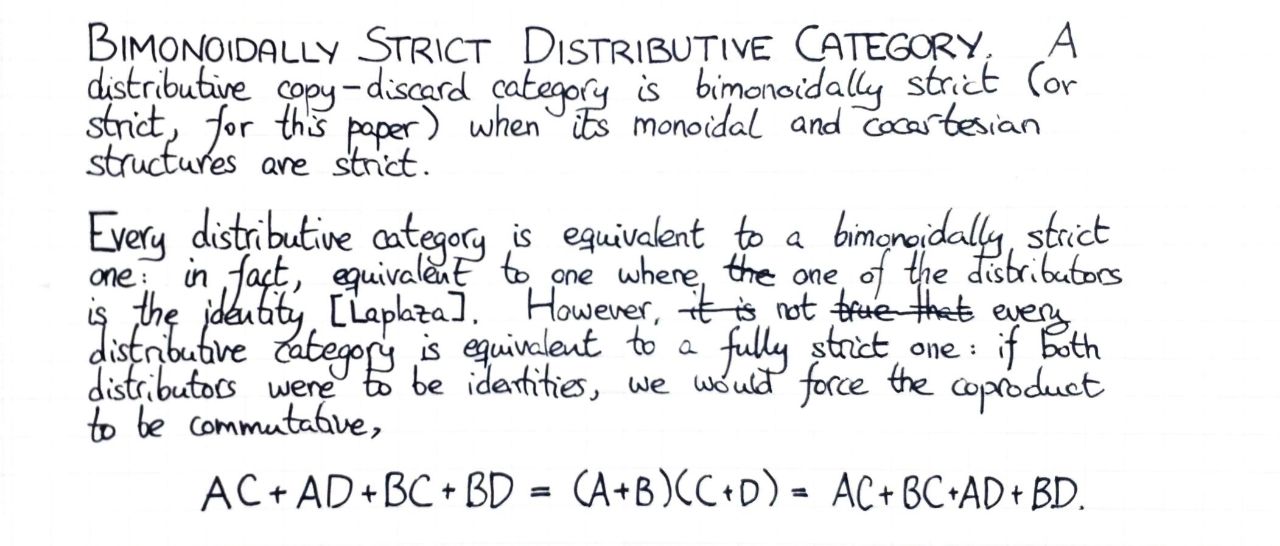 BIMONOIDALLY STRICT DISTRIBUTIVE CATEGORY. A
distributive copy-discard category is bimonoidally strict (or
strict, for this paper) when its monoidal and cocartesian
structures are strict.
Every distributive category is equivalent to a bimonoidally strict
one: in fact, equivalent to one where the one of the distributors
is the identity [Laplaza]. However, it is not true that every
distributive category is equivalent to a fully strict one: if both
distributors were to be identities, we would force the coproduct
to be commutative,
AC+AD+BC+BD = (A+B)(C+D) = AC+BC+AD+BD.